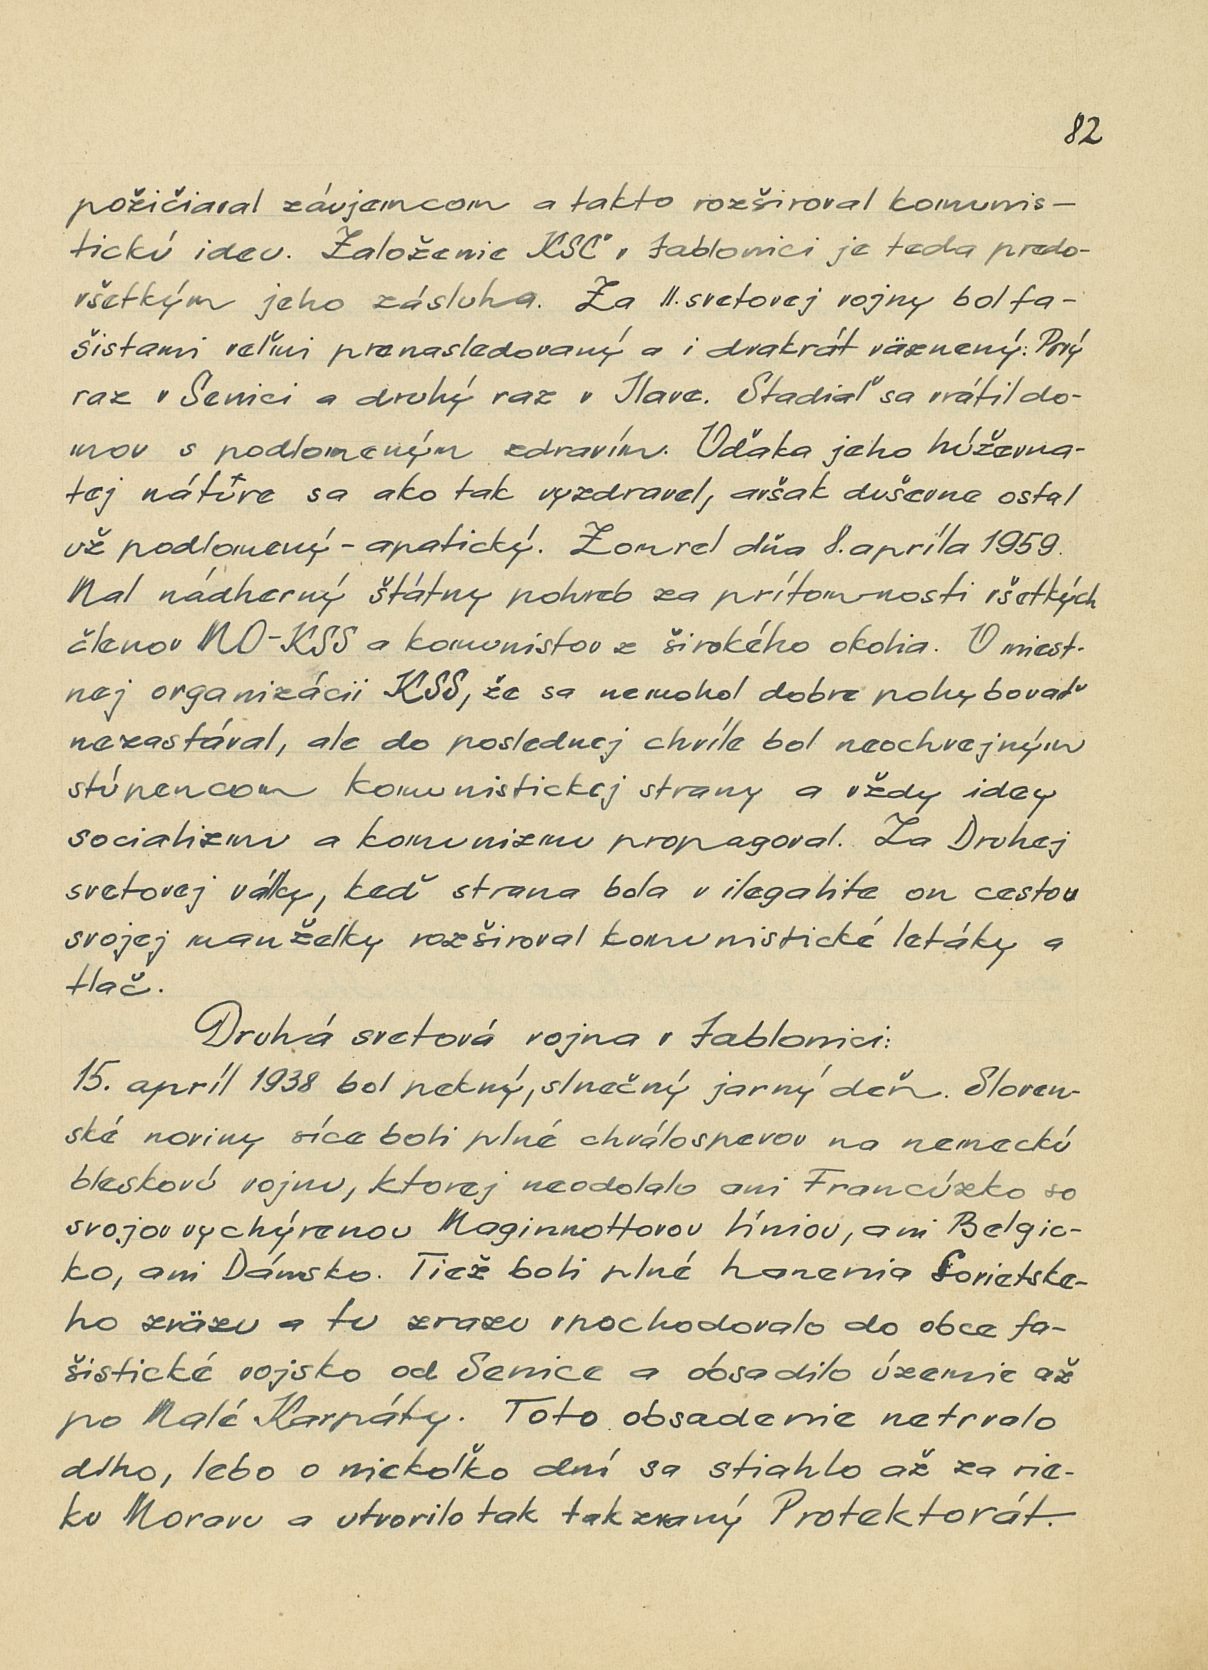 82
požičiaval záujemcom a takto rozširoval komunis-
tickú ideu. Založenie KSČ v Jablonici je teda predo-
všetkým jeho zásluha. Za II. svetovej vojny bol fa-
šistami veľmi prenasledovaný a i dvakrát väznený: Prvý
raz v Senici a druhý raz v Ilave. Stadiaľ sa vrátil do-
mov s podlomeným zdravím. Vďaka jeho húževna-
tej nátúre sa ako tak vyzdravel, avšak duševne ostal
už podlomený - apatický. Zomrel dňa 8. apríla 1959.
Mal nádherný štátny pohreb za prítomnosti všetkých
členov MO-KSS a komunistov z širokého okolia. V miest-
nej organizácii KSS, že sa nemohol dobre pohybovať
nezastával, ale do poslednej chvíle bol neochvejným
stúpencom komunistickej strany a vždy idey
socializmu a komunizmu propagoval. Za Druhej
svetovej války, keď strana bola v ilegalite on cestou
svojej manželky rozširoval komunistické letáky a
tlač.
Druhá svetová vojna v Jablonici:
15. apríl 1938 bol pekný, slnečný jarný deň. Sloven-
ské noviny síce boli plné chválospevov na nemeckú
bleskovú vojnu, ktorej neodolalo ani Francúzko so
svojou vychýrenou Maginnottovou líniou, ani Belgic-
ko, ani Dánsko. Tiež boli plné hanenia Sovietske-
ho zväzu a tu zrazu vpochodovalo do obce fa-
šistické vojsko od Senice a obsadilo územie až
po Malé Karpáty. Toto obsadenie netrvalo
dlho, lebo o niekoľko dní sa stiahlo až za rie-
ku Moravu a utvorilo tak takzvaný Protektorát.